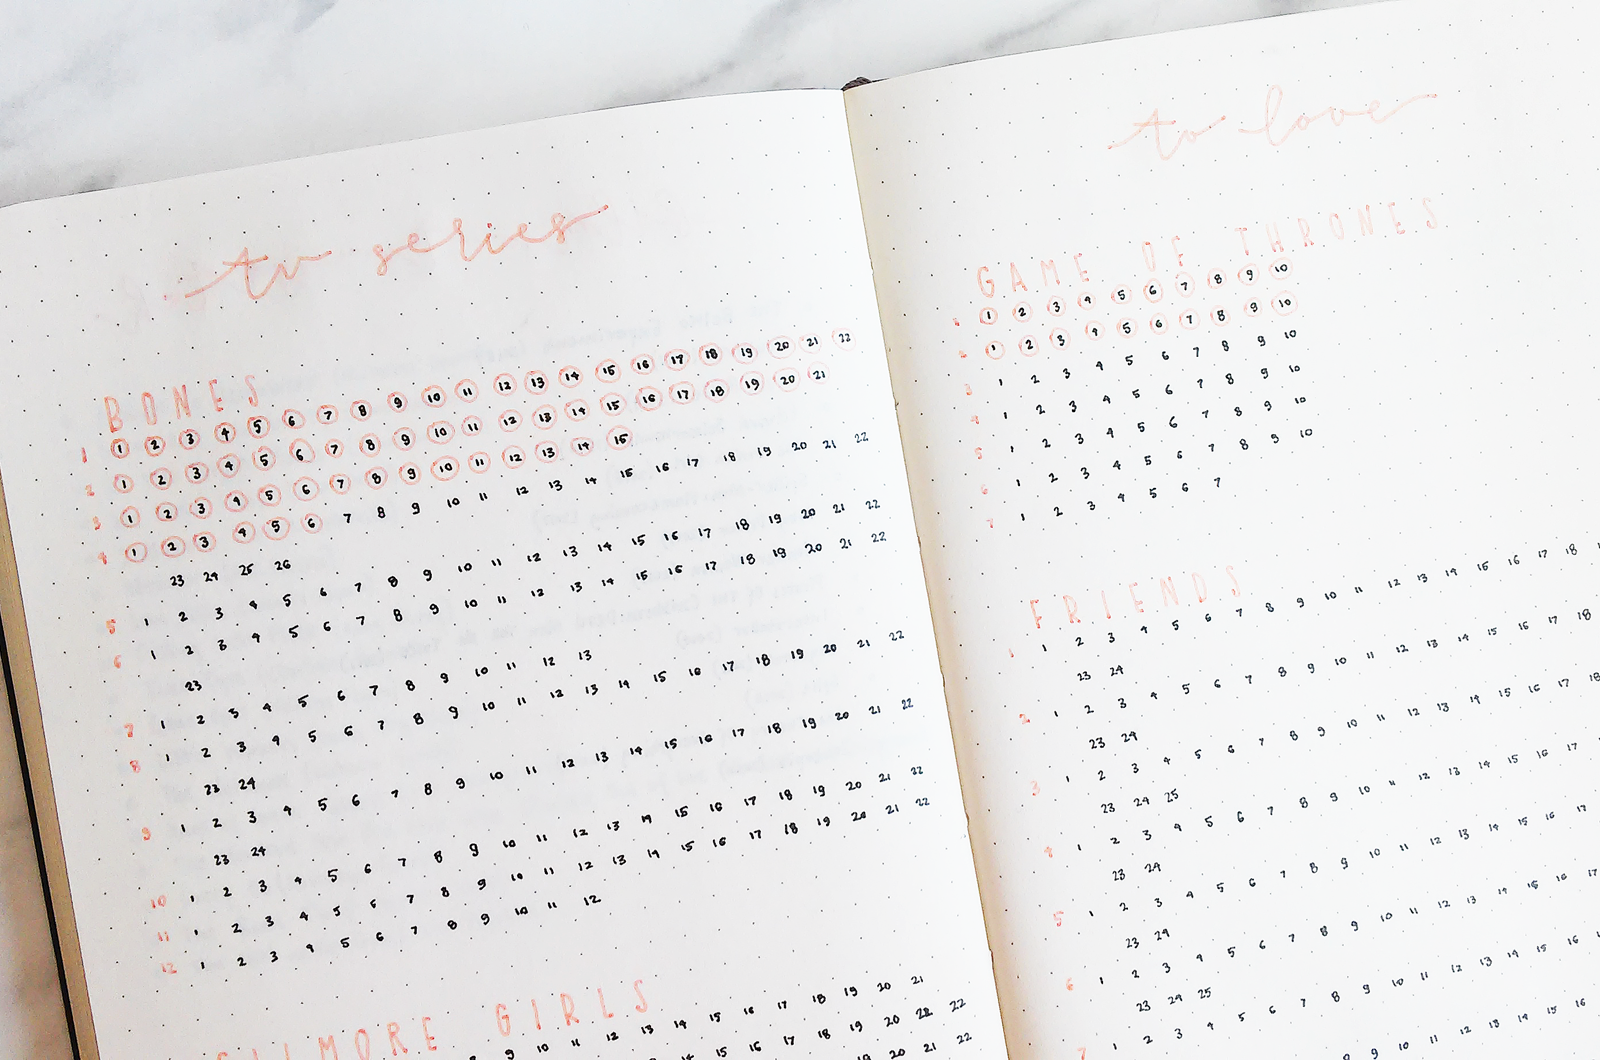 tv series
BONES
1 1 2 3 4 5 6 7 8 9 10 11 12 13 14 15 16 17 18 19 20 21 22
2 1 2 3 4 5 6 7 8 9 10 11 12 13 14 15 16 17 18 19 20 21
3 1 2 3 4 5 6 7 8 9 10 11 12 13 14 15
4 1 2 3 4 5 6 7 8 9 10 11 12 13 14 15 16 17 18 19 20 21 22
23 24 25 26
5 1 2 3 4 5 6 7 8 9 10 11 12 13 14 15 16 17 18 19 20 21 22
6 1 2 3 4 5 6 7 8 9 10 11 12 13 14 15 16 17 18 19 20 21 22
23
7 1 2 3 4 5 6 7 8 9 10 11 12 13
8 1 2 3 4 5 6 7 8 9 10 11 12 13 14 15 16 17 18 19 20 21 22
23 24
9 1 2 3 4 5 6 7 8 9 10 11 12 13 14 15 16 17 18 19 20 21 22
23 24
10 1 2 3 4 5 6 7 8 9 10 11 12 13 14 15 16 17 18 19 20 21 22
11 1 2 3 4 5 6 7 8 9 10 11 12 13 14 15 16 17 18 19 20 21 22
12 1 2 3 4 5 6 7 8 9 10 11 12
GILMORE GIRLS
9 10 11 12 13 14 15 16 17 18 19 20 21
14 15 16 17 18 19 20 21 22
20 21 22
to love
GAME OF THRONES
1 1 2 3 4 5 6 7 8 9 10
2 1 2 3 4 5 6 7 8 9 10
3 1 2 3 4 5 6 7 8 9 10
4 1 2 3 4 5 6 7 8 9 10
5 1 2 3 4 5 6 7 8 9 10
6 1 2 3 4 5 6 7 8 9 10
7 1 2 3 4 5 6 7
FRIENDS
1 1 2 3 4 5 6 7 8 9 10 11 12 13 14 15 16 17 18
23 24
2 1 2 3 4 5 6 7 8 9 10 11 12 13 14 15 16 17 18
23 24
3 1 2 3 4 5 6 7 8 9 10 11 12 13 14 15 16 17 18
23 24 25
4 1 2 3 4 5 6 7 8 9 10 11 12 13 14 15 16 17
23 24
5 1 2 3 4 5 6 7 8 9 10 11 12 13 14 15 16 17
23 24
6 1 2 3 4 5 6 7 8 9 10 11 12 13 14 15 16 17
23 24 25
7 1 2 3 4 5 6 7 8 9 10 11 12 13 14 15 16
8 9 10 11 12 13 14 15 16